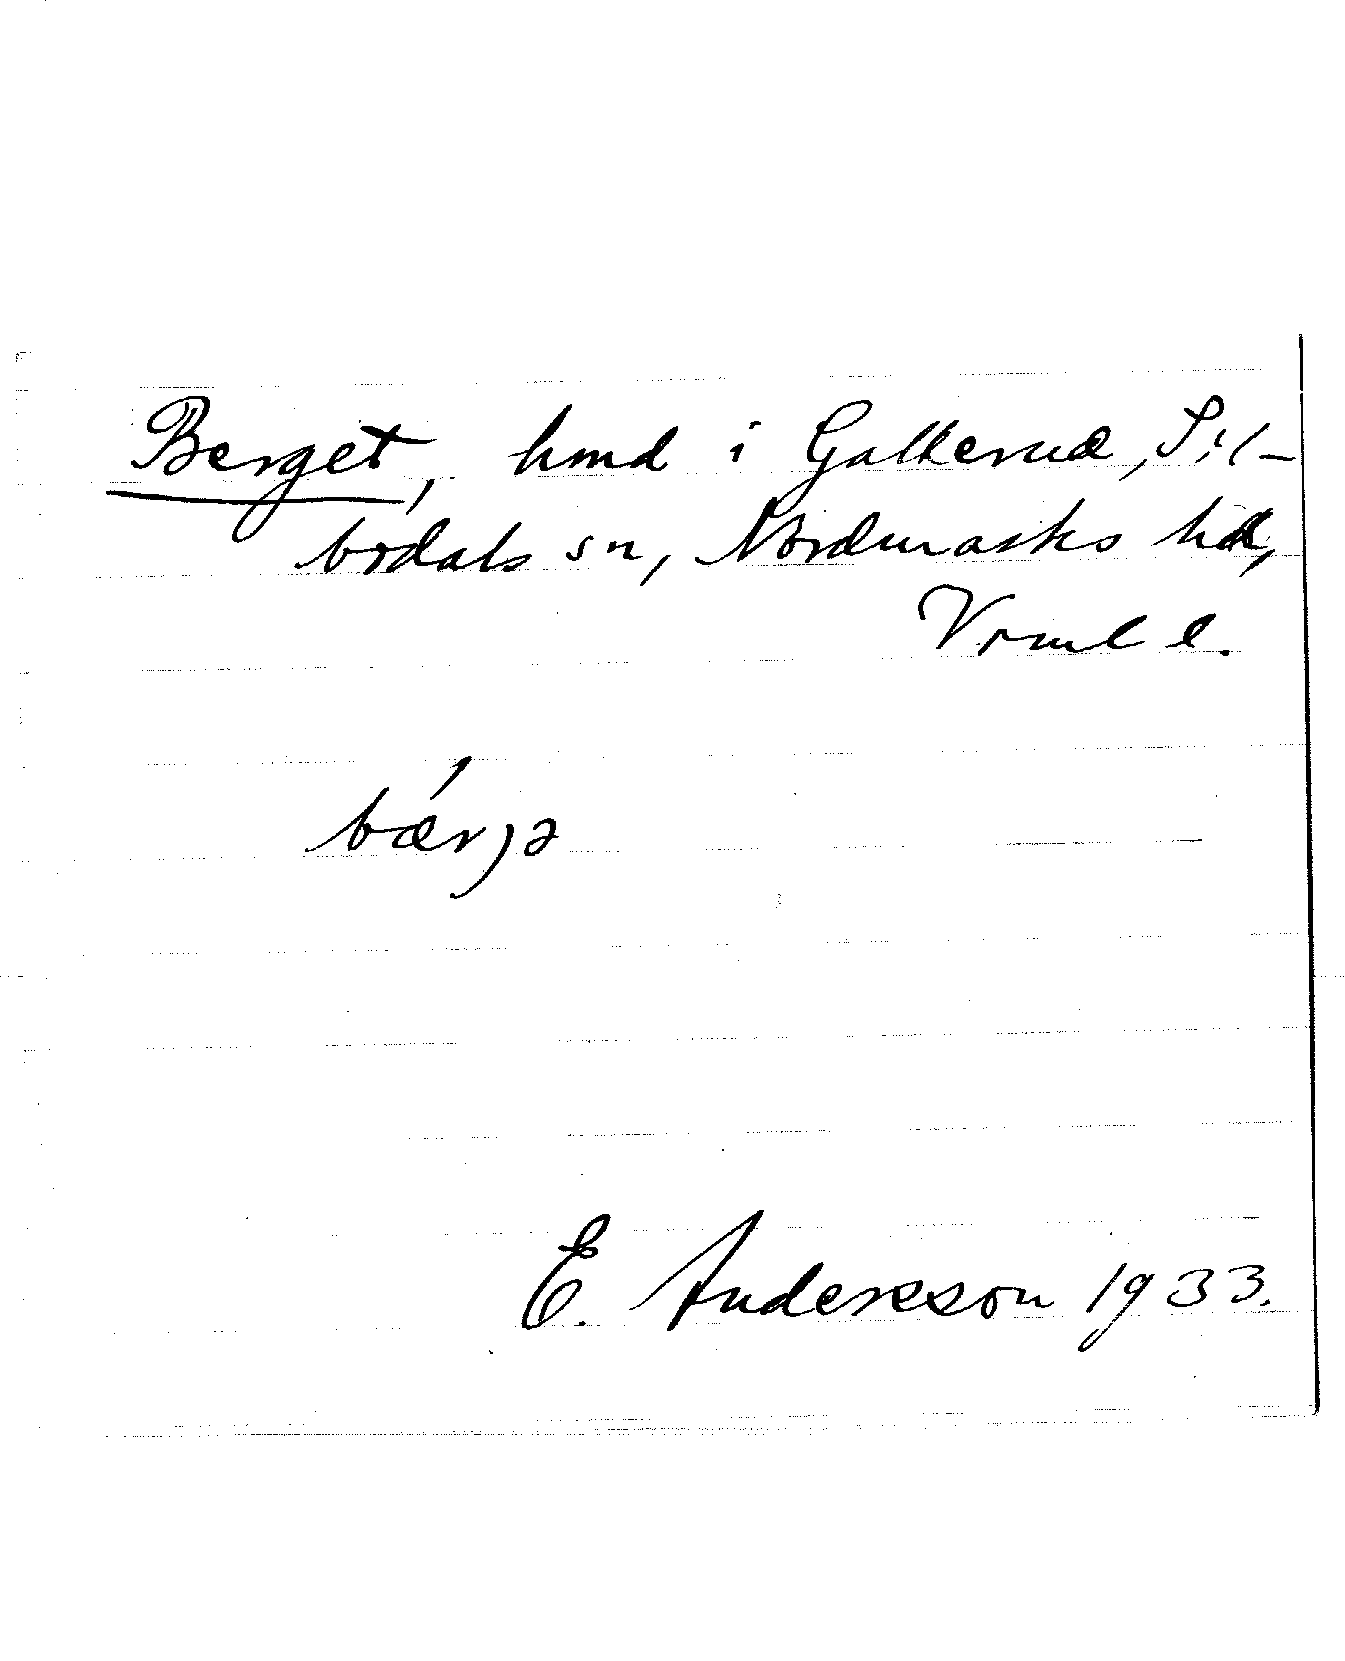 Berget, hmd i Galkerud, Sil-
bodals sn, Nordmarks hd,
Vrml l.
bærjə
E. Andersson 1933.